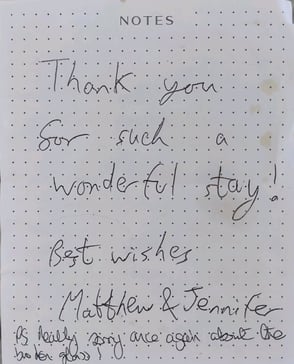 NOTES
Thank you
for such a
wonderful stay!
Best wishes
Matthew & Jennifer
PS Really sorry once again about the
broken glass!